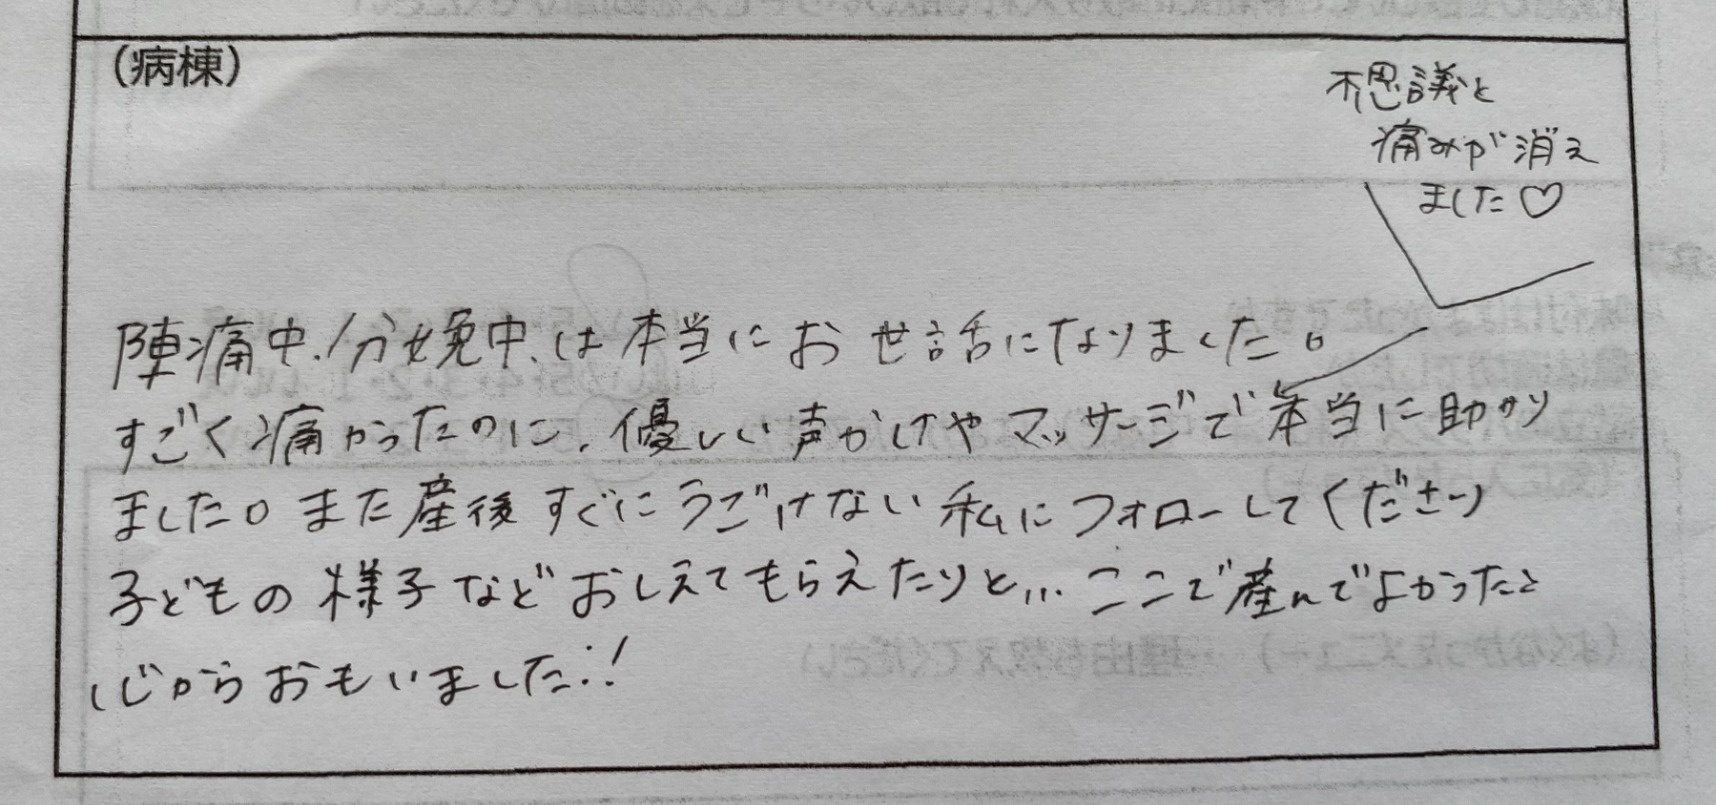 (病棟)
不思議と
痛みが消え
ました♡
陣痛中、分娩中、は本当にお世話になりました。
すごく痛かったのに、優しい声かけやマッサージで本当に助かり
ました。また産後すぐにうごけない私にフォローしてくださり
子どもの様子などおしえてもらえたりと… ここで産んでよかったと
心からおもいました!!